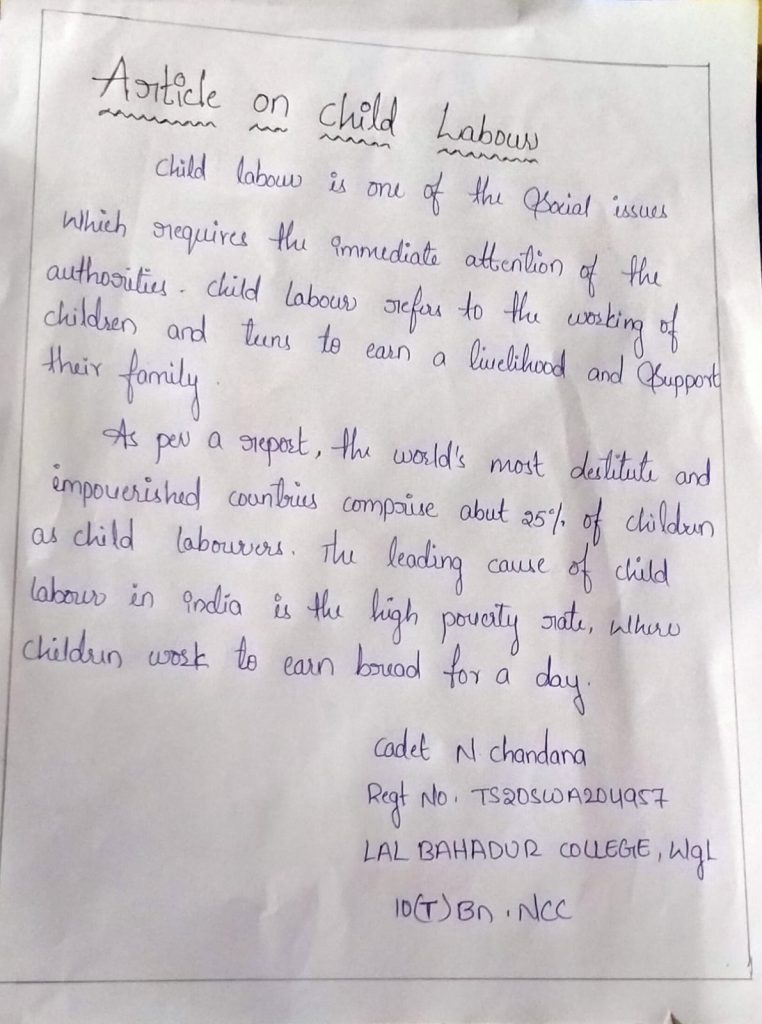 Article on Child Labour
Child labour is one of the Social issues
Which requires the immediate attention of the
authorities. Child Labour refers to the working of
children and teens to earn a livelihood and Support
their family.
As per a report, the world's most destitute and
impoverished countries comprise abut 25% of children
as child labourers. The leading cause of child
labour in india is the high poverty rate, Where
children work to earn bread for a day.
Cadet N. Chandana
Regt No. TS20SWA204957
LAL BAHADUR COLLEGE, WgL
10(T) Bn. NCC